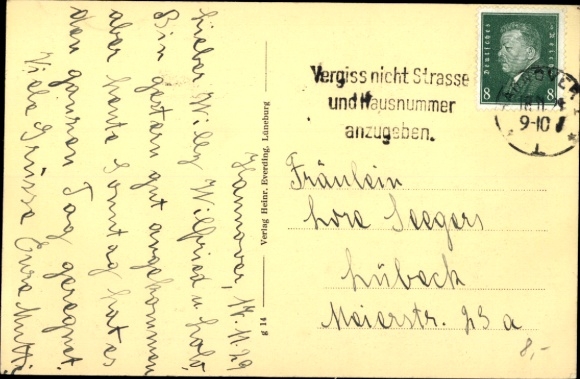 Hannover, 17. 11. 29
Lieber Willy Wilfried u. Lore
Bin gestern gut angekommen
aber heute Sonntag hat es
den ganzen Tag geregnet.
Viele Grüsse Eure Mutti
g 14 Verlag Heinr. Everding, Lüneburg
Vergiss nicht Strasse
und Hausnummer
anzugeben.
Deutsches Reich
8 8
HANNOVER
18.11.29
9-10
1
Fräulein
Lore Seegers
Lübeck
Meierstr. 23 a
8,-